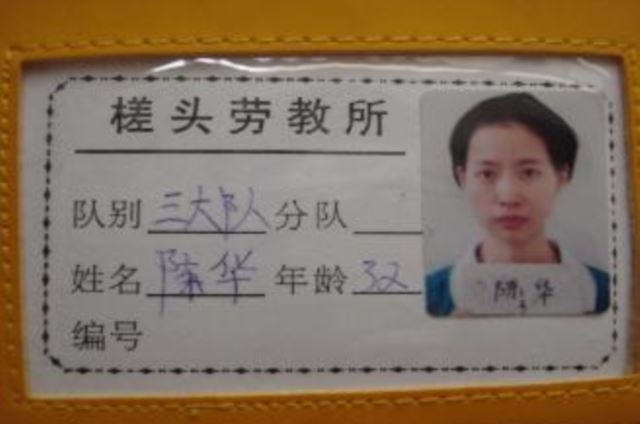 槎头劳教所
队别 三大队 分队
姓名 陈华 年龄 32
编号
陈 华